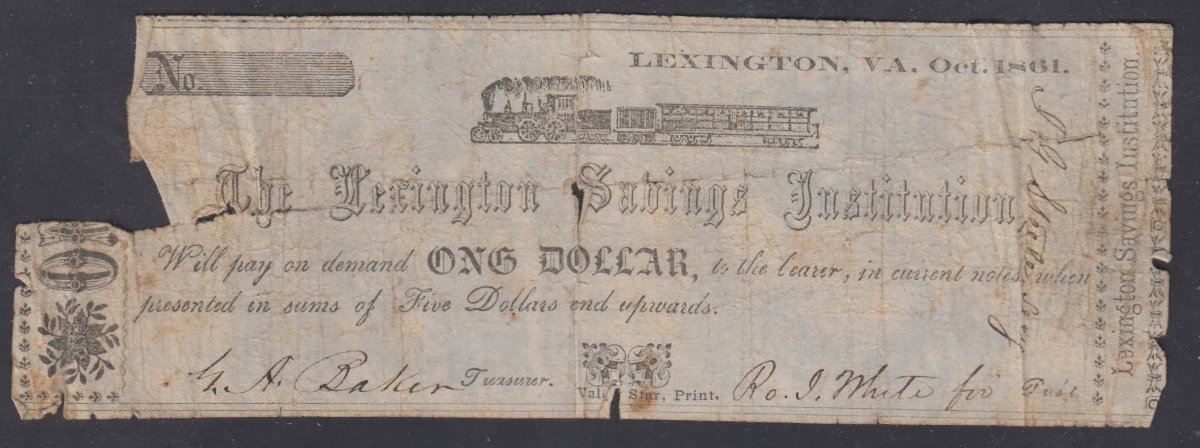 No.
LEXINGTON, VA. Oct. 1861.
The Lexington Savings Institution
Will pay on demand ONE DOLLAR, to the bearer, in current notes, when
presented in sums of Five Dollars and upwards.
G. A. Baker Treasurer.
Star, Print.
Ro. I. White for Prest.
Lexington Savings Institution